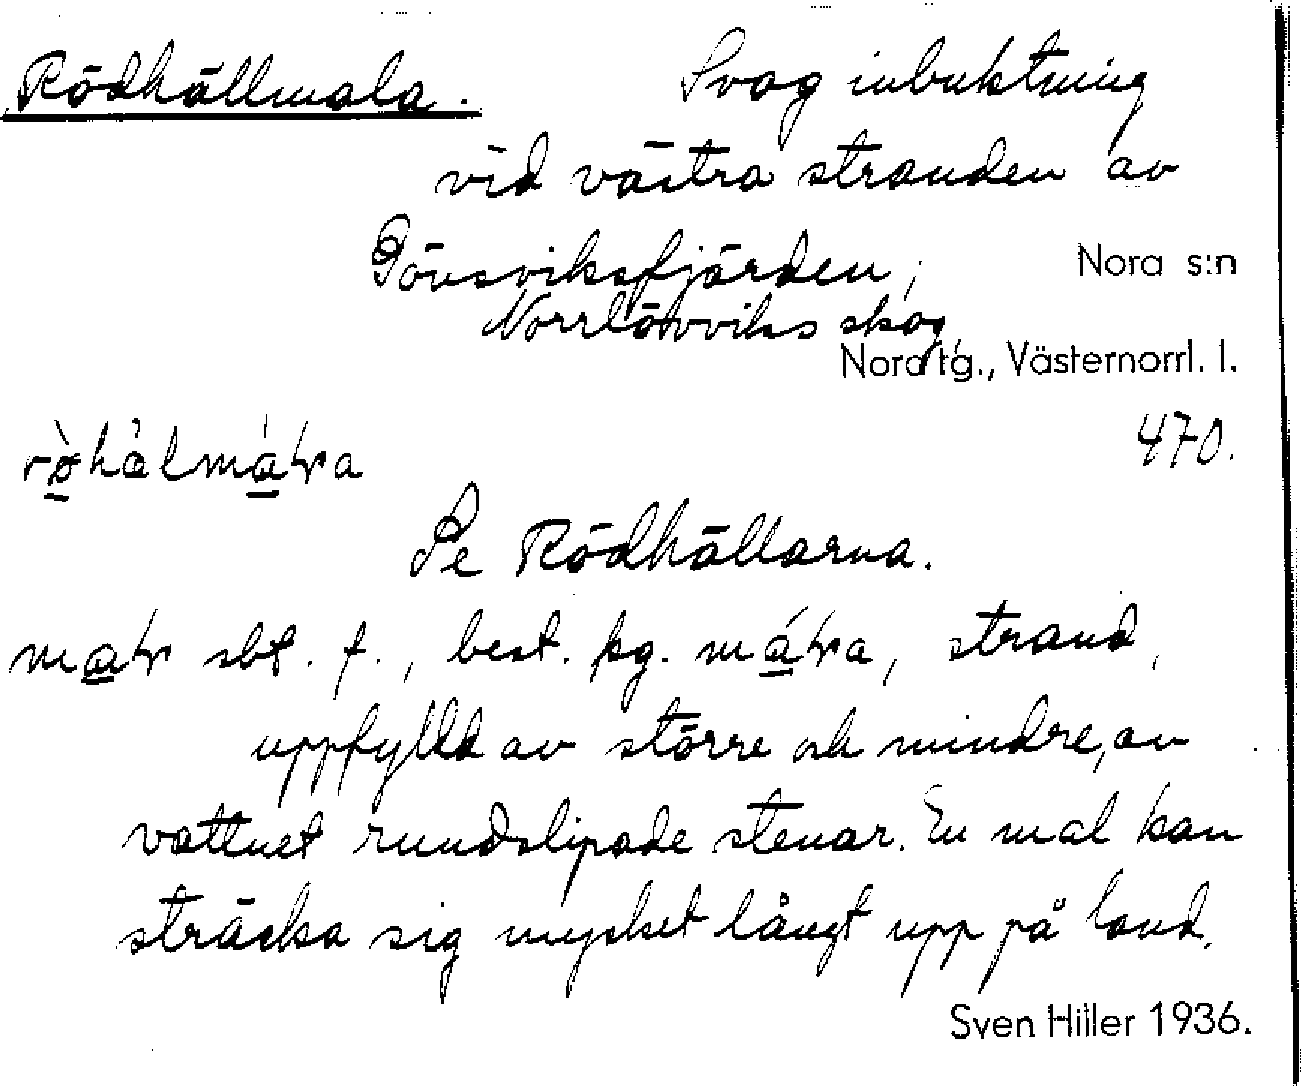 Rödhällmala. Svag inbuktning
vid västra stranden av
Gövsviksfjärden,
Nora s:n
Norrlövviks skog,
Nora tg., Västernorrl. l.
470.
Se Rödhällarna.
sbt. f., best. sg. strand,
uppfylld av större och mindre, av
vattnet rundslipade stenar. En mal kan
sträcka sig mycket långt upp på land.
Sven Hiller 1936.